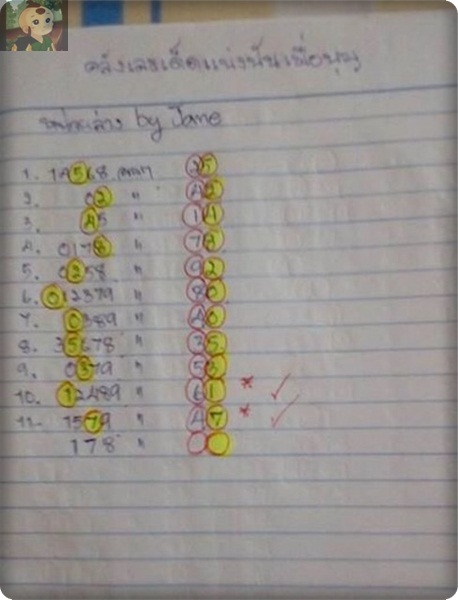 คลังเลขเด็ดแบ่งปันเพื่อบุญ
หน่วยล่าง by Jame
1. 14568 25
2. 02 " 42
3. 45 " 14
4. 0178 " 78
5. 0258 " 92
6. 012379 " 80
7. 0389 " 40
8. 35678 " 35
9. 0379 " 53
10. 12489 " 61 * ✓
11. 1579 " 47 * ✓
178 "